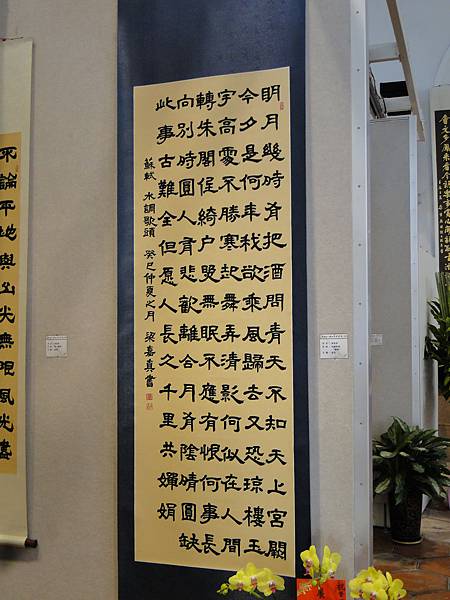 明月幾時有把酒問青天不知天上宮闕
今夕是何年我欲乘風歸去又恐瓊樓玉
宇高處不勝寒起舞弄清影何似在人間
轉朱閣低綺户照無眠不應有恨何事長
向別時圓人有悲歡離合月有陰晴圓缺
此事古難全但愿人長久千里共嬋娟
蘇軾 水調歌頭 癸巳仲夏之月 梁嘉真書
不論平地與山尖無限風光盡